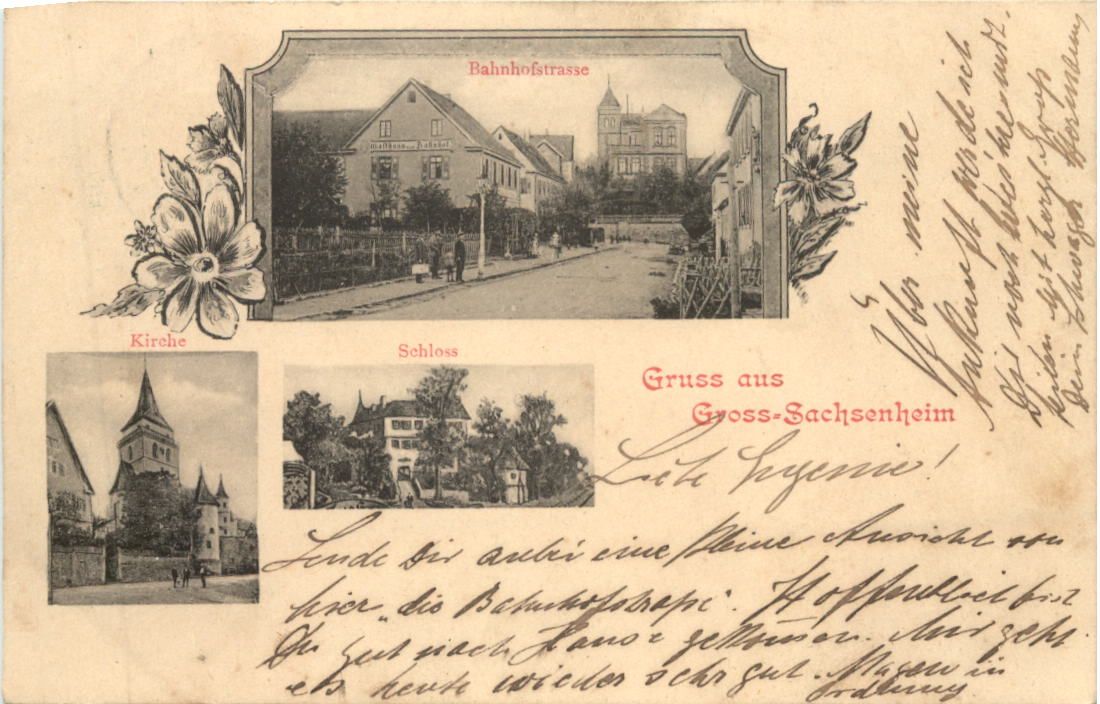 Bahnhofstrasse
Gasthaus zum Bahnhof
Kirche
Schloss
Gruss aus
Gross-Sachsenheim
Liebe Eugenie!
Sende Dir anbei eine kleine Ansicht von
hier „die Bahnhofstraße“. Hoffentlich bist
Du gut nach Hause gekommen. Mir geht
es heute wieder sehr gut. Magen in
Ordnung.
Über meine
Ankunft werde ich
Dir noch
Zeilen herzl.
Dein Schwager Hermann